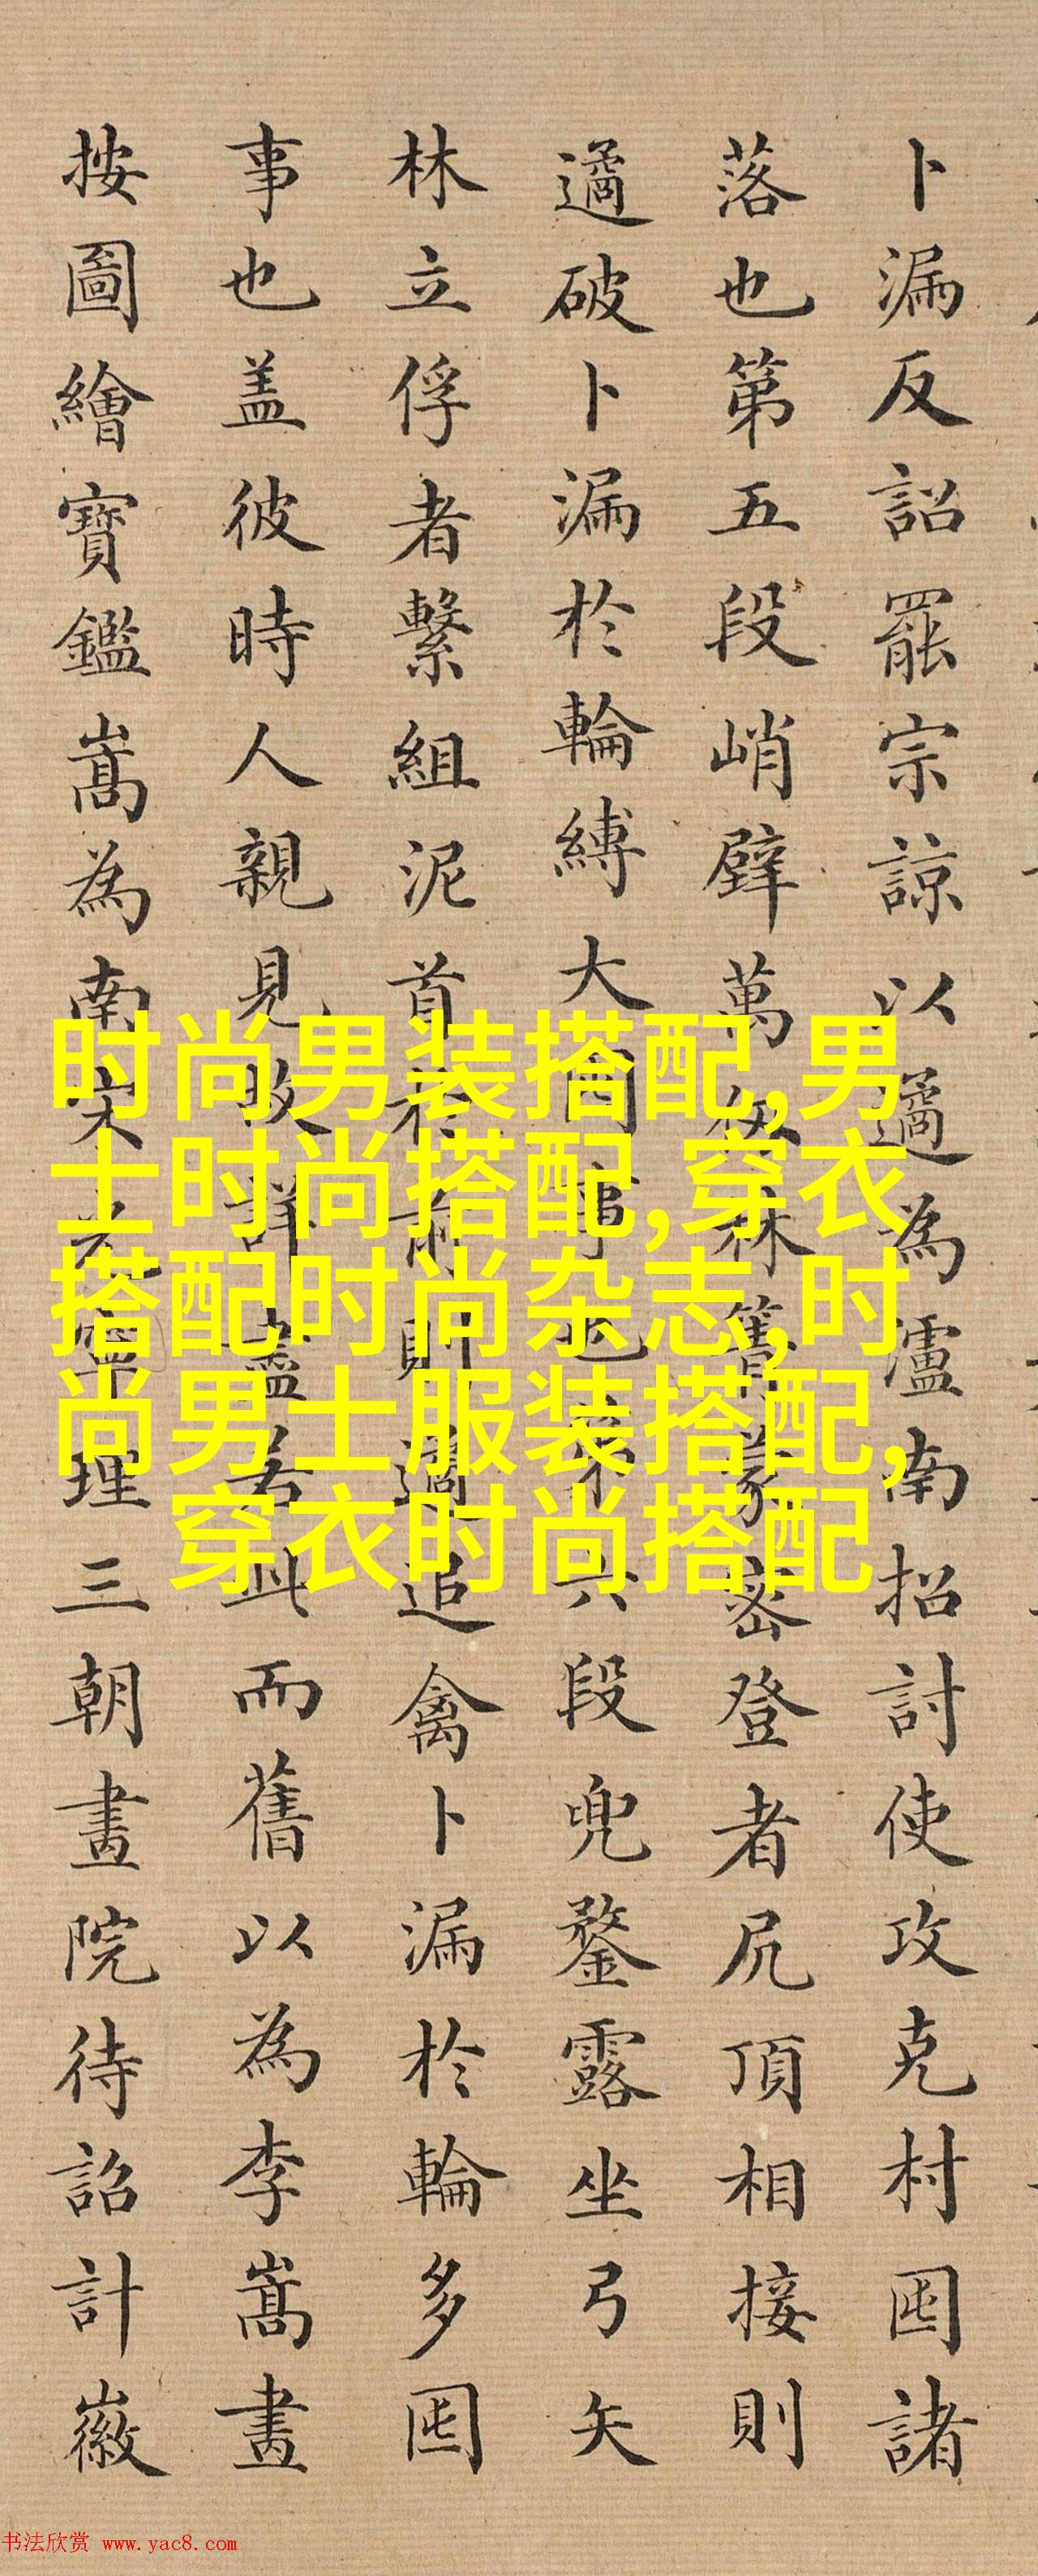 卜漏反詔罷宗諒以遹為瀘南招討使攻克村囤諸
落也第五段峭壁萬仞林箐蒙密登者尻頂相接則
遹破卜漏於輪縛大囤事也第六段兜鍪露坐弓矢
林立俘者繫組泥首於前則遹追禽卜漏於輪多囤
事也盖彼時人親見故詳盡若此而舊以為李嵩畫
按圖繪寶鑑嵩為南宋光寧理三朝畫院待詔計徽
时尚男装搭配,男
士时尚搭配,穿衣
搭配,时尚杂志,时
尚男士服装搭配,
穿衣时尚搭配
书法欣赏 www.yac8.com